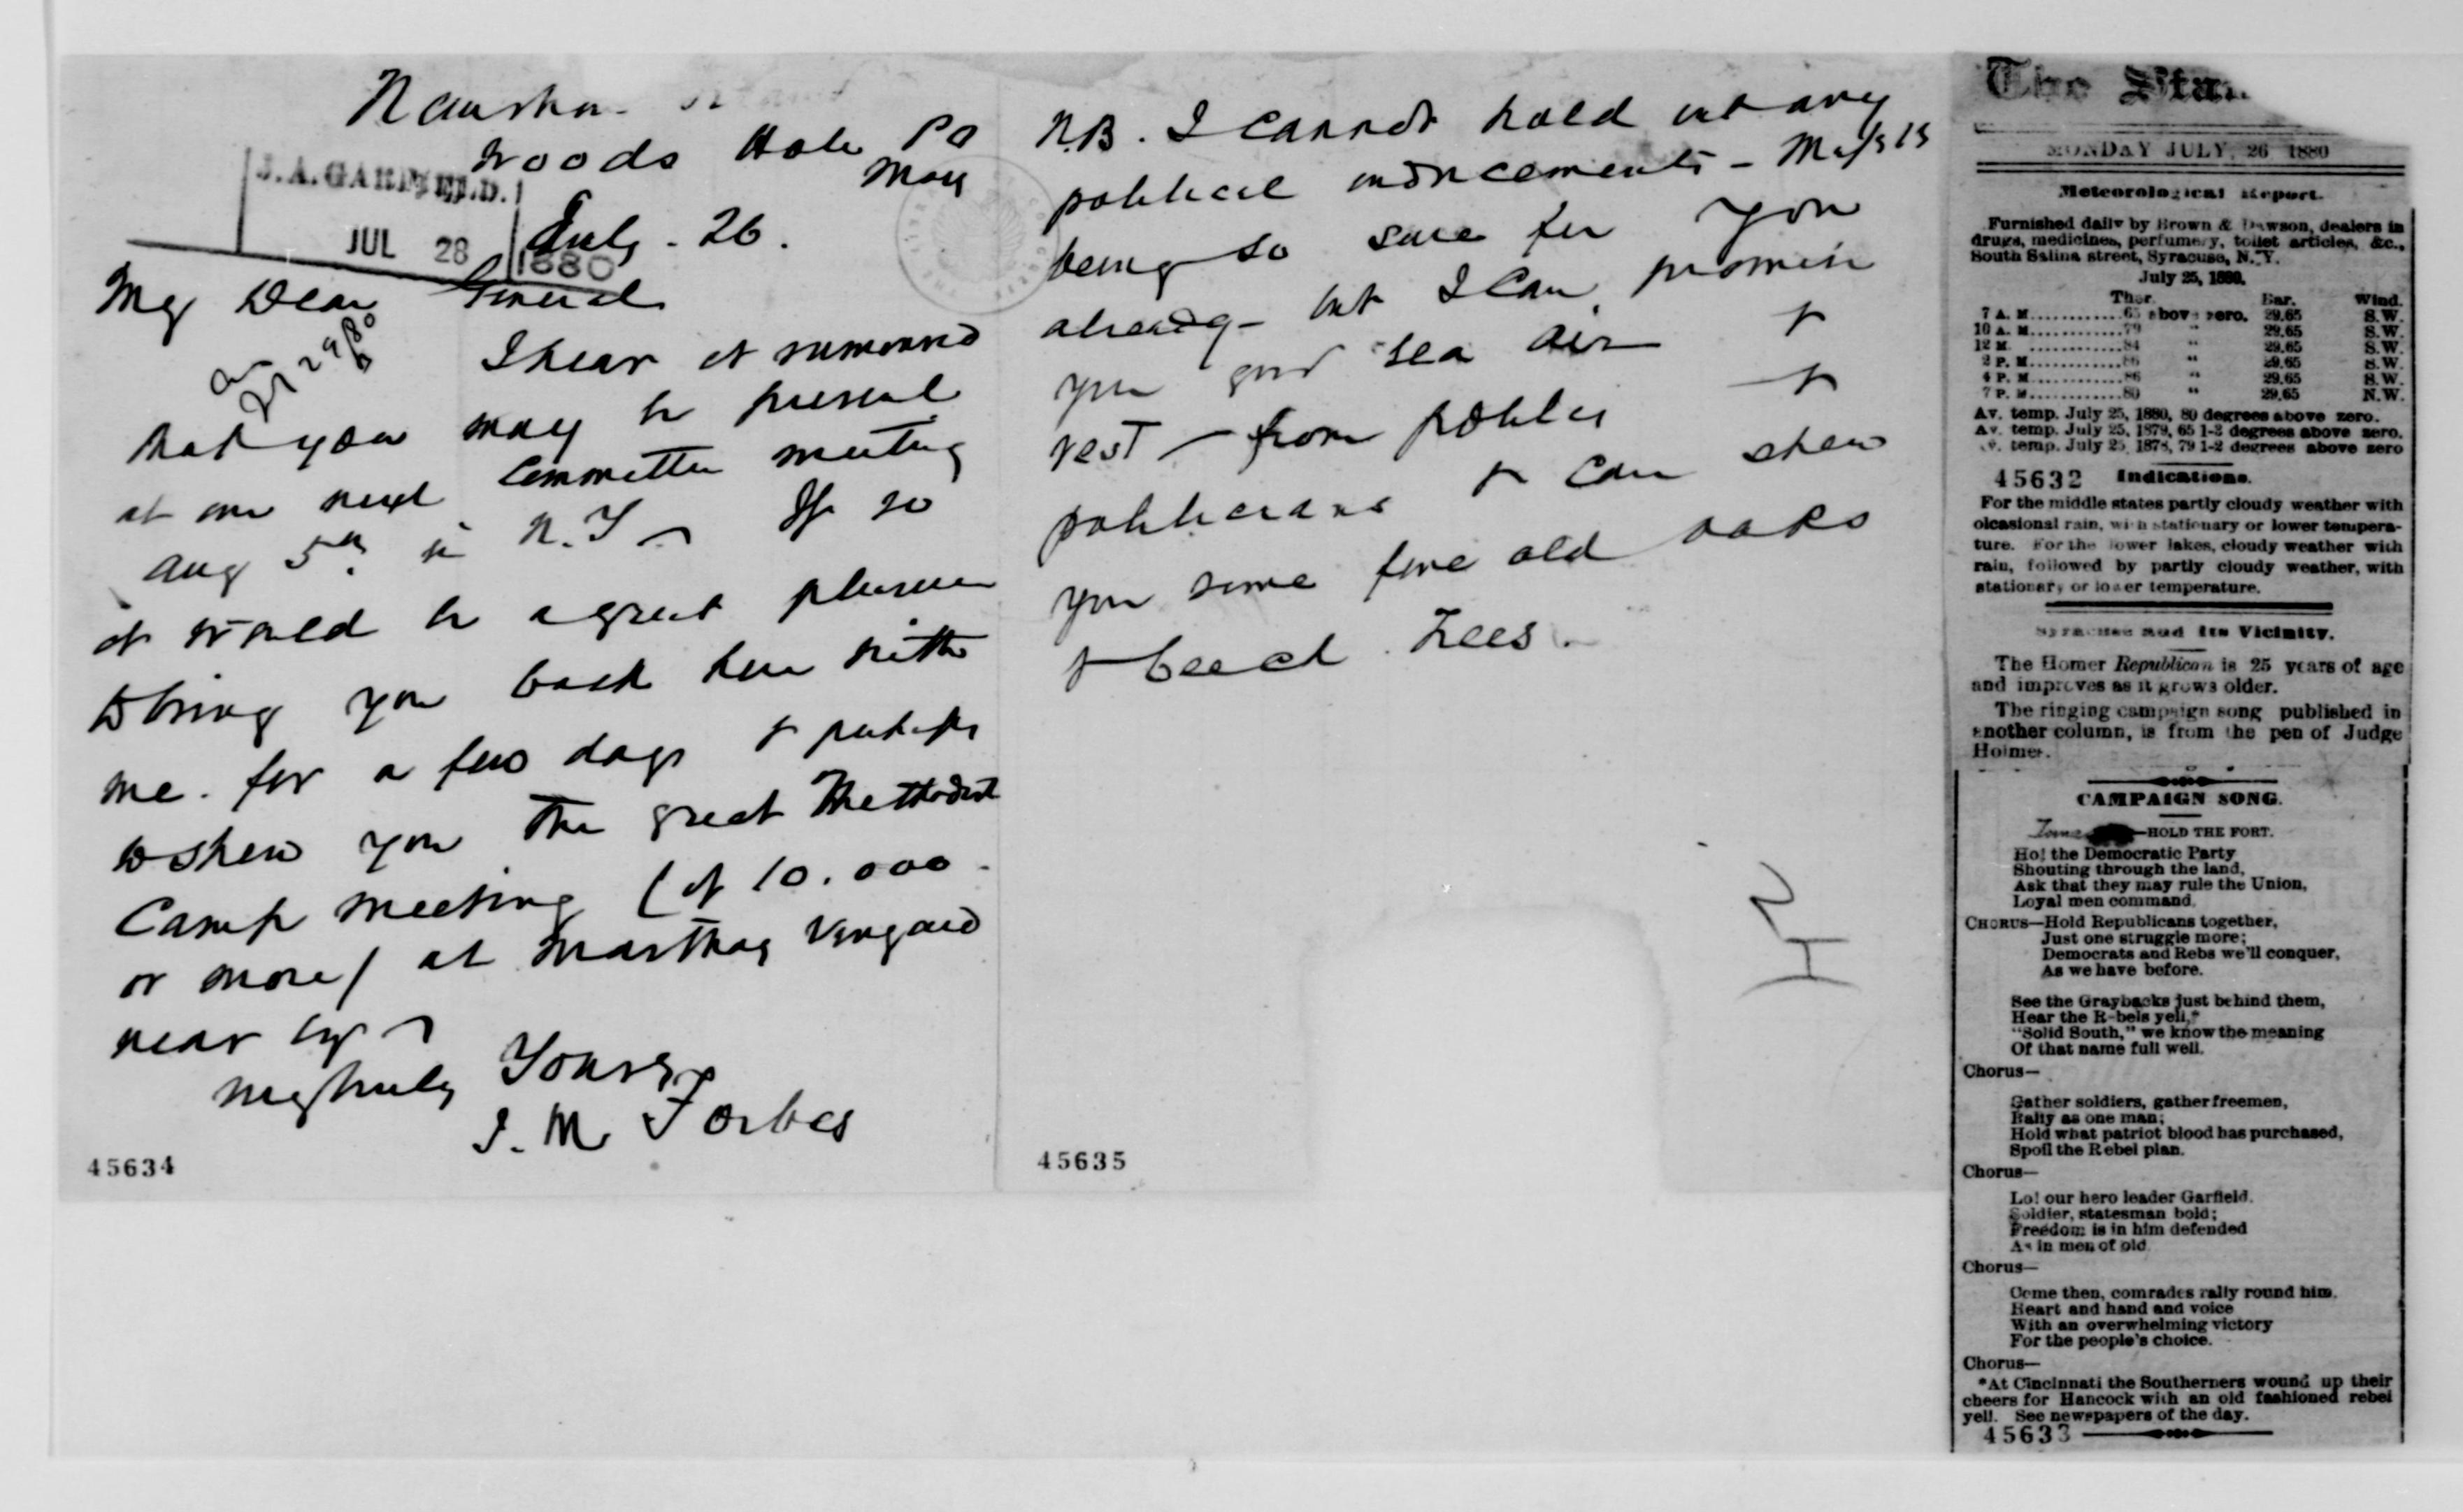 Naushon Island
Woods Hole PO
Mass
July. 26.
J.A. GARFIELD.
JUL 28 1880
My Dear General
I hear it rumoured
that you may be present
at our next Committee meeting
Aug 5th in N.Y. If so
it would be a great pleasure
to bring you back here with
me. for a few days & perhaps
to shew you the great Methodist
Camp meeting (of 10.000
or more) at Marthas Vineyard
near by
very truly Yours
J. M. Forbes
45634
N.B. I cannot hold out any
political inducements - Mass
being so sure for you
already - but I can promise
you good sea air &
rest - from politics &
politicians & can shew
you some fine old oaks
& beech Trees.
45635
The Stan
MONDAY JULY, 26 1880
Meteorological Report.
Furnished daily by Brown & Dawson, dealers in
drugs, medicines, perfumery, toilet articles, &c.,
South Salina street, Syracuse, N.Y.
July 25, 1880.
Ther. Bar. Wind.
7 A. M............65 above zero. 29.65 S.W.
10 A. M............79 " 29.65 S.W.
12 M. ............84 " 29.65 S.W.
2 P. M............86 " 29.65 S.W.
4 P. M............86 " 29.65 S.W.
7 P. M............80 " 29.65 N.W.
Av. temp. July 25, 1880, 80 degrees above zero.
Av. temp. July 25, 1879, 65 1-2 degrees above zero.
Av. temp. July 25, 1878, 79 1-2 degrees above zero
45632 Indications.
For the middle states partly cloudy weather with
olcasional rain, with stationary or lower tempera-
ture. For the lower lakes, cloudy weather with
rain, followed by partly cloudy weather, with
stationary or lower temperature.
Syracuse and Its Vicinity.
The Homer Republican is 25 years of age
and improves as it grows older.
The ringing campaign song published in
another column, is from the pen of Judge
Holmes.
CAMPAIGN SONG.
Tune —HOLD THE FORT.
Ho! the Democratic Party
Shouting through the land,
Ask that they may rule the Union,
Loyal men command.
CHORUS—Hold Republicans together,
Just one struggle more;
Democrats and Rebs we'll conquer,
As we have before.
See the Graybacks just behind them,
Hear the Rebels yell,*
"Solid South," we know the meaning
Of that name full well.
Chorus—
Gather soldiers, gather freemen,
Rally as one man;
Hold what patriot blood has purchased,
Spoil the Rebel plan.
Chorus—
Lo! our hero leader Garfield.
Soldier, statesman bold;
Freedom is in him defended
As in men of old
Chorus—
Come then, comrades rally round him.
Heart and hand and voice
With an overwhelming victory
For the people's choice.
Chorus—
*At Cincinnati the Southerners wound up their
cheers for Hancock with an old fashioned rebel
yell. See newspapers of the day.
45633